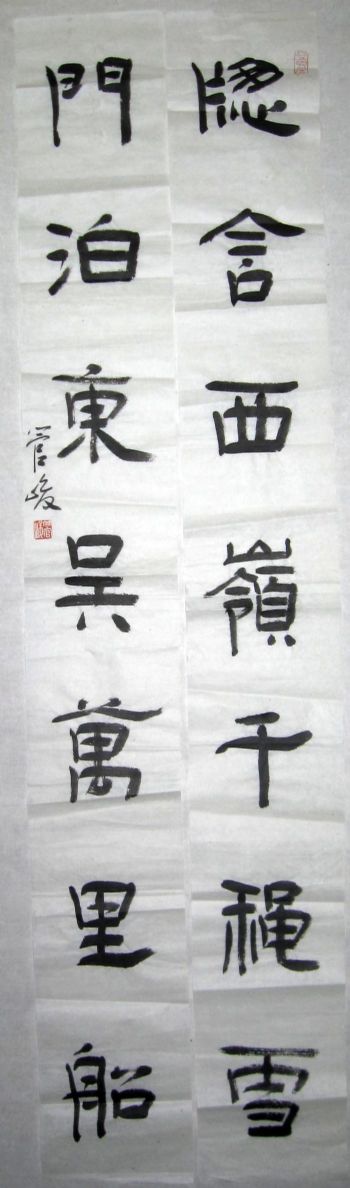 牕含西嶺千穐雪
門泊東吳萬里船
管峻